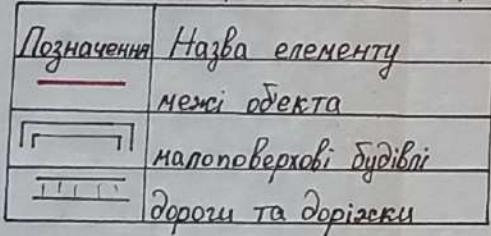 Позначення Назва елементу
межі об'екта
малоповерхові будівлі
дороги та доріжки